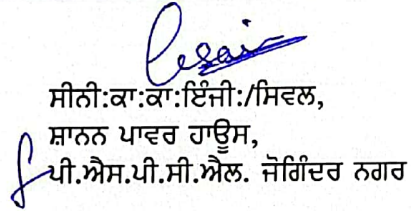 ਸੀਨੀ:ਕਾ:ਕਾ:ਇੰਜੀ:/ਸਿਵਲ,
ਸ਼ਾਨਨ ਪਾਵਰ ਹਾਊਸ,
ਪੀ.ਐਸ.ਪੀ.ਸੀ.ਐਲ. ਜੋਗਿੰਦਰ ਨਗਰ